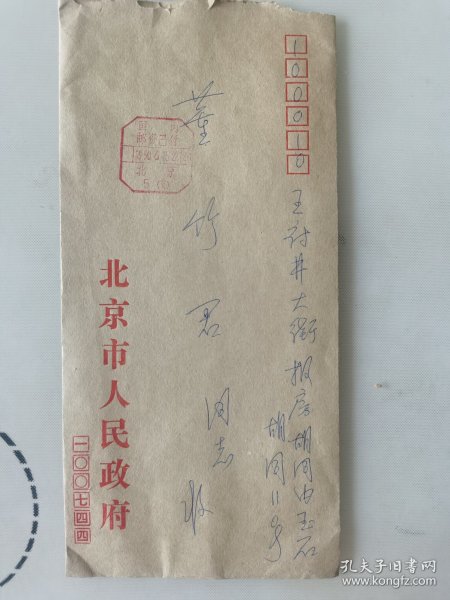 100010
王府井大街报房胡同内玉石
胡同11号
董竹君同志收
国内
邮资已付
北京
北京市人民政府
一〇〇七四四
孔夫子旧书网
www.kongfz.com